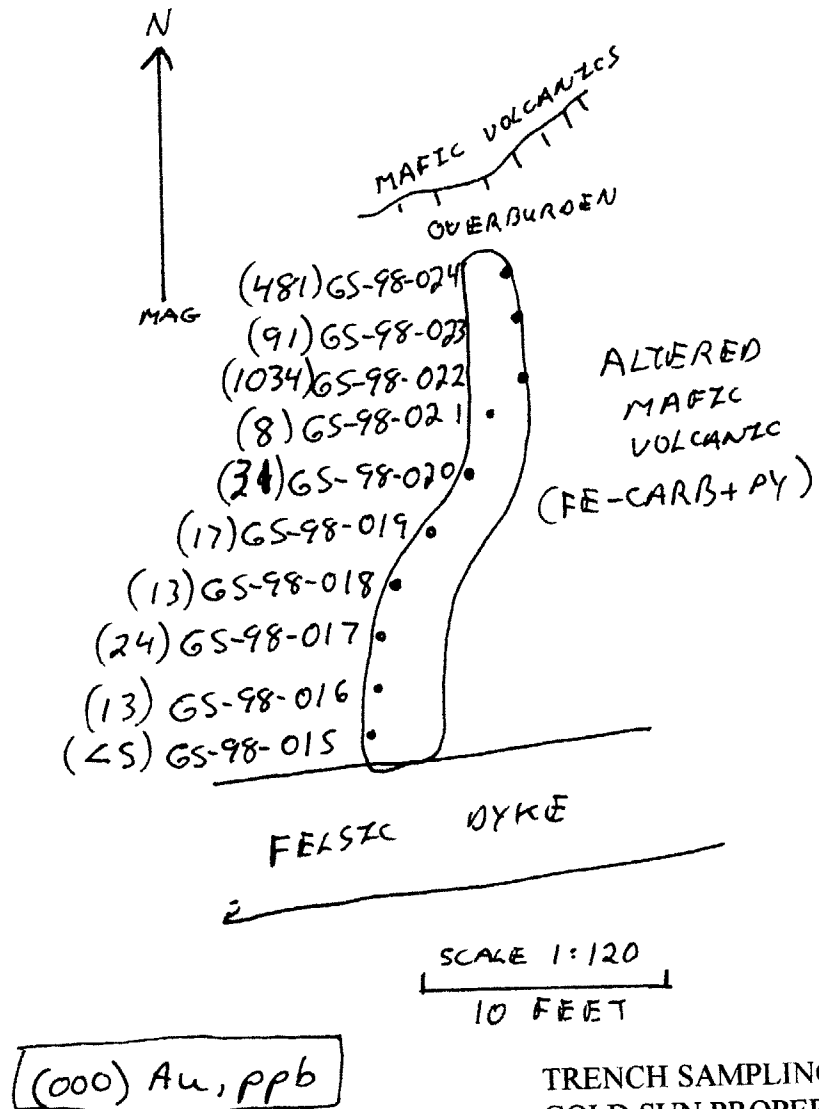 N
MAG
MAFIC VOLCANICS
OVERBURDEN
(481) GS-98-024
(91) GS-98-023
(1034) GS-98-022
(8) GS-98-021
(31) GS-98-020
(17) GS-98-019
(13) GS-98-018
(24) GS-98-017
(13) GS-98-016
(<5) GS-98-015
ALTERED
MAFIC
VOLCANIC
(FE-CARB+PY)
FELSIC DYKE
SCALE 1:120
10 FEET
(000) Au, ppb
TRENCH SAMPLING
GOLD SUN PROPER